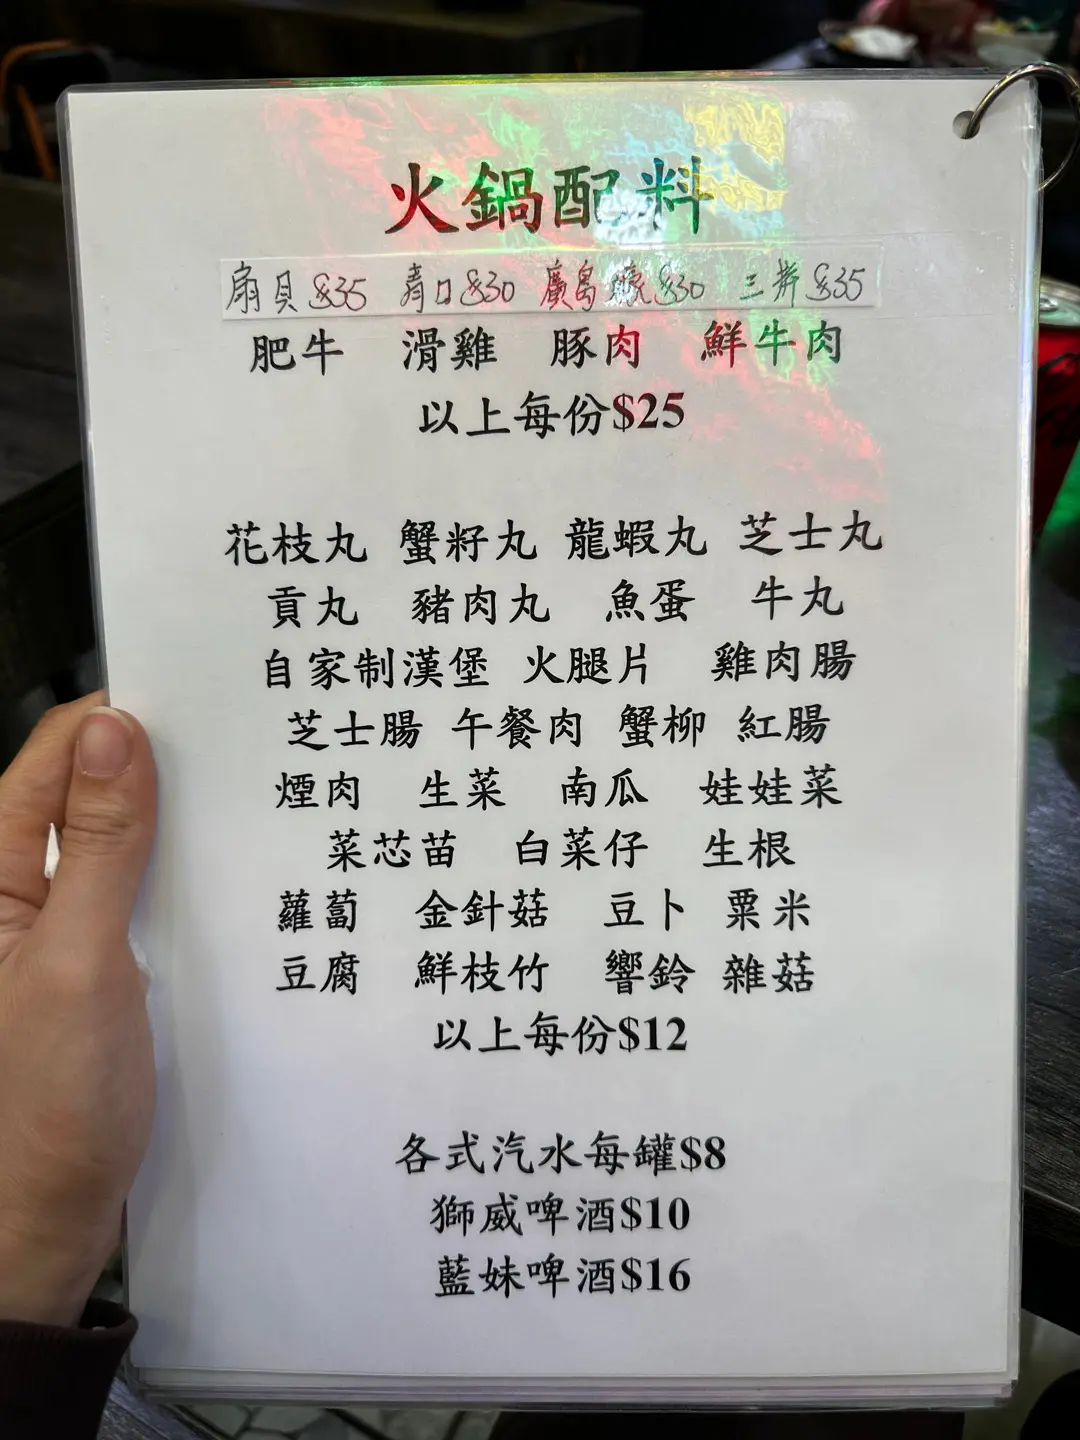 火鍋配料
扇貝$35 青口$30 廣島蠔$30 三文魚$35
肥牛 滑雞 豚肉 鮮牛肉
以上每份$25
花枝丸 蟹籽丸 龍蝦丸 芝士丸
貢丸 豬肉丸 魚蛋 牛丸
自家制漢堡 火腿片 雞肉腸
芝士腸 午餐肉 蟹柳 紅腸
煙肉 生菜 南瓜 娃娃菜
菜芯苗 白菜仔 生根
蘿蔔 金針菇 豆卜 粟米
豆腐 鮮枝竹 響鈴 雜菇
以上每份$12
各式汽水每罐$8
獅威啤酒$10
藍妹啤酒$16